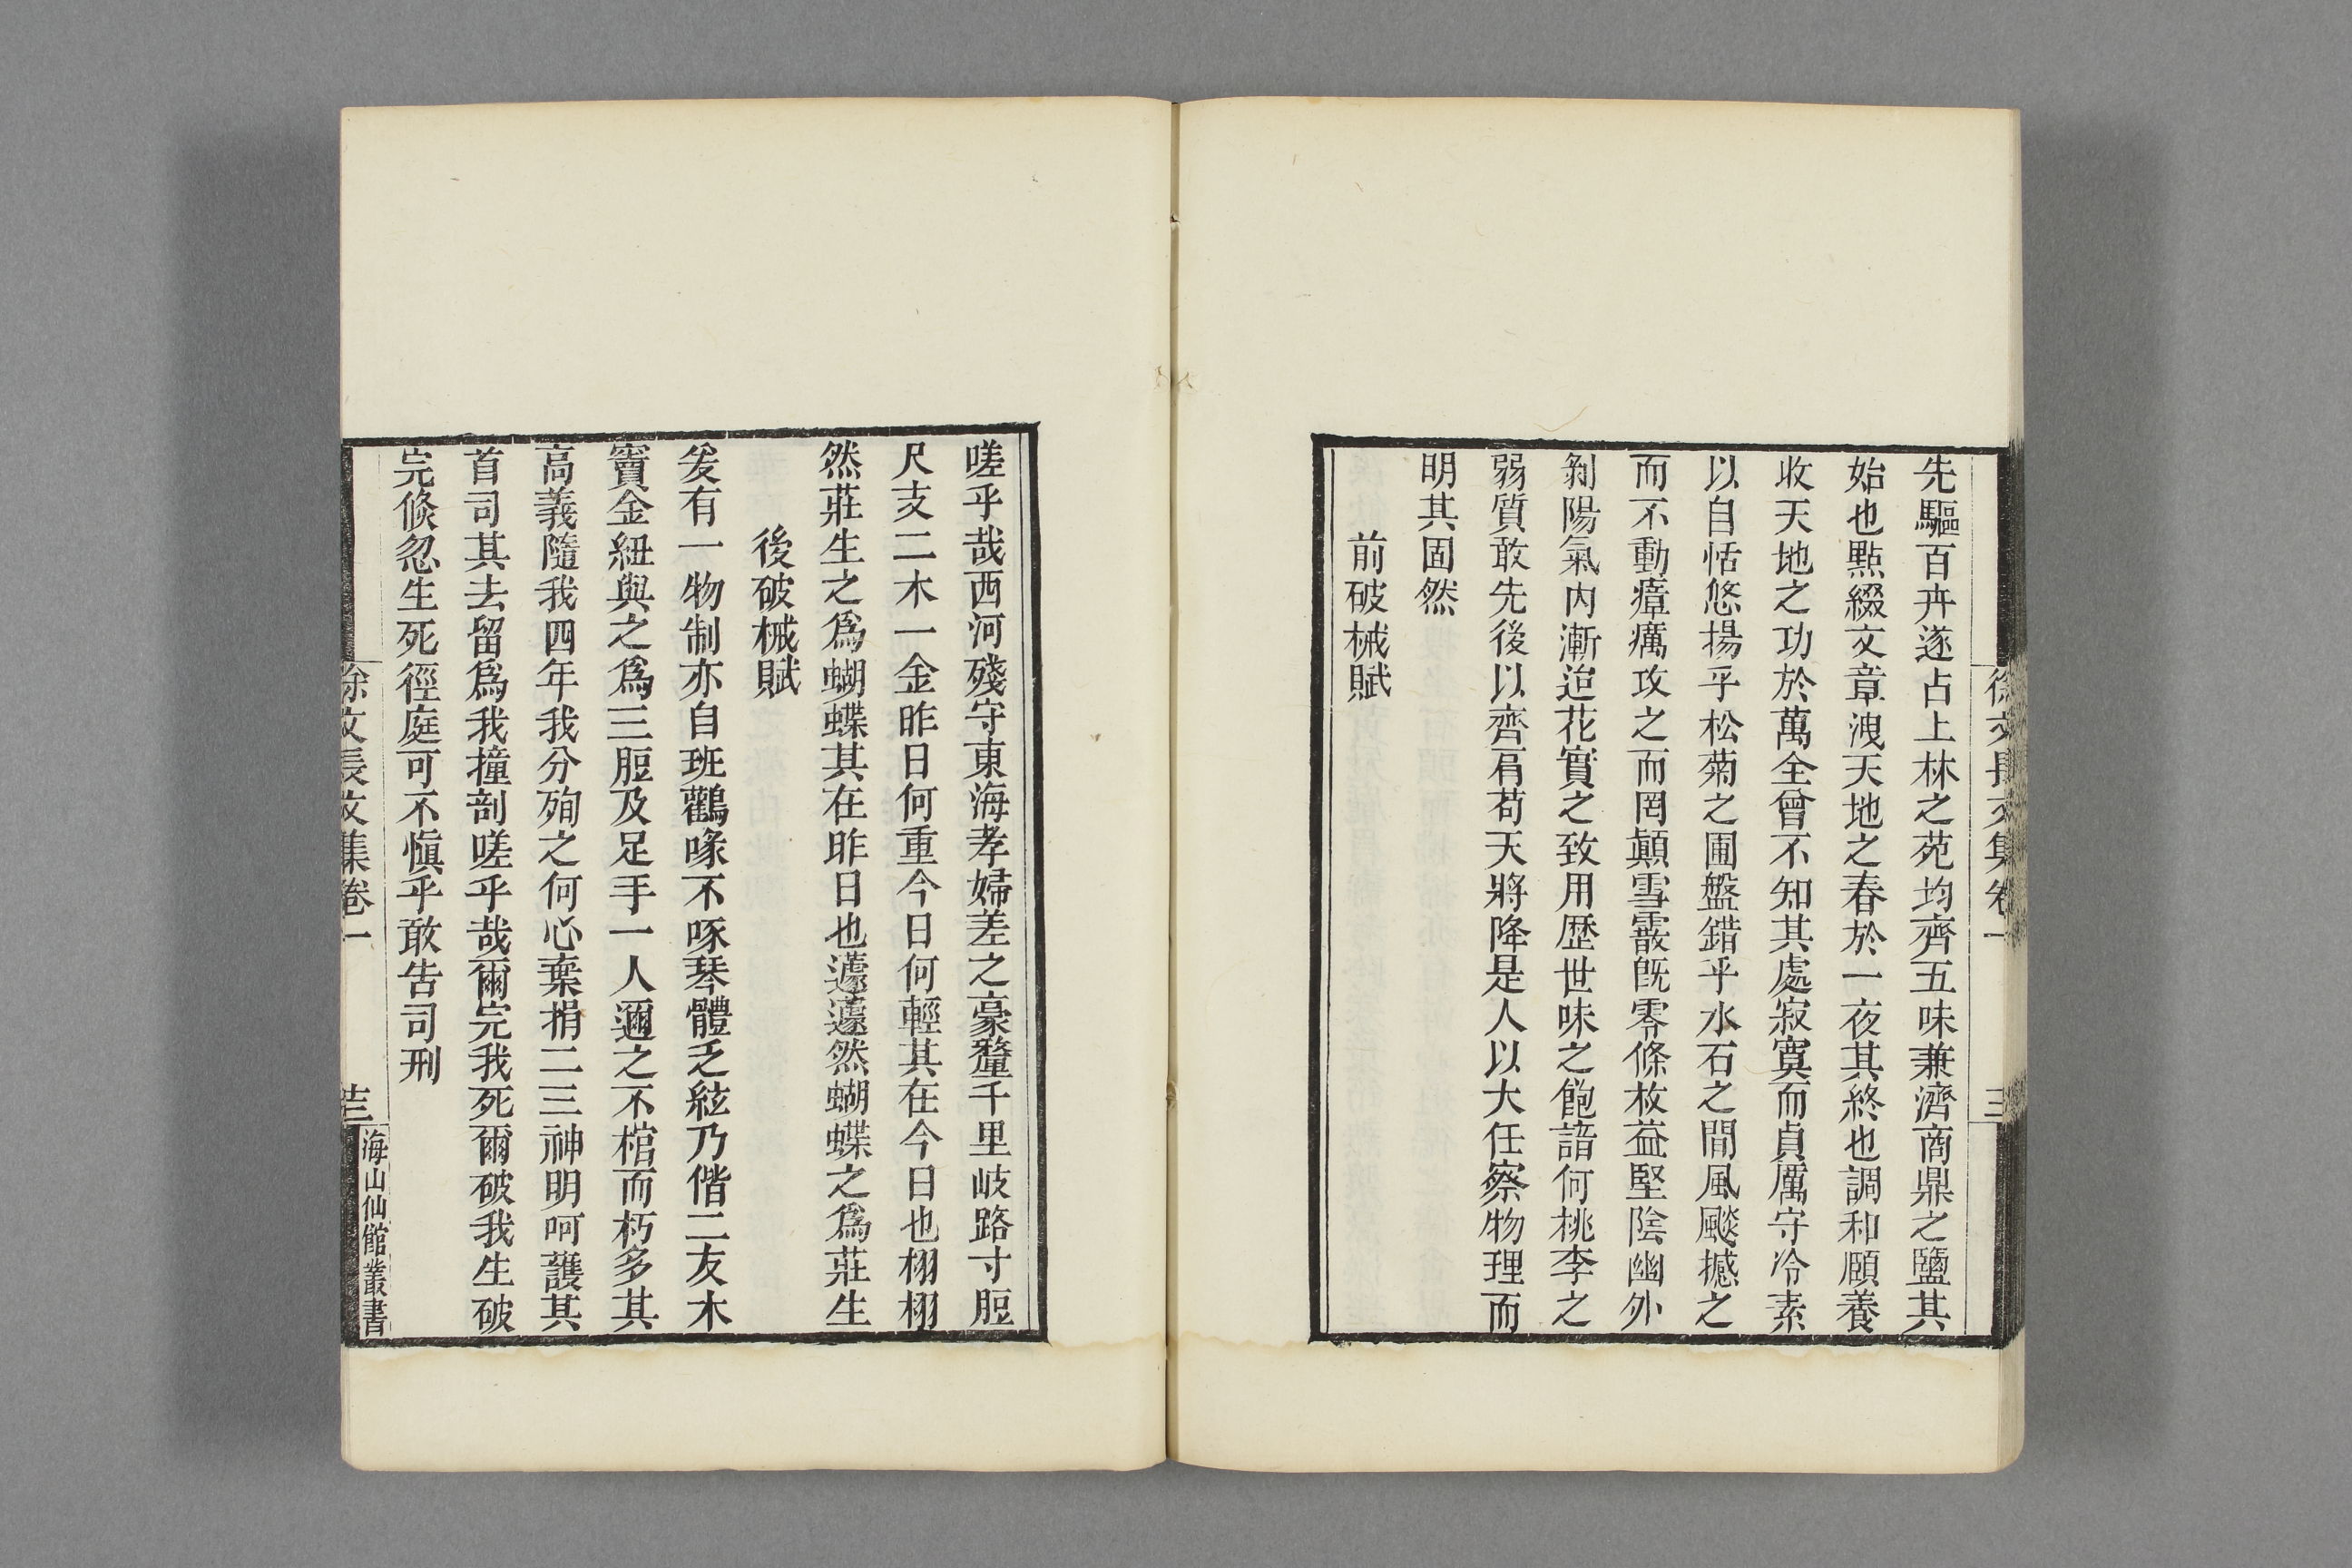 徐文長文集卷一
三
先驅百卉遂占上林之苑均齊五味兼濟商鼎之鹽其
始也點綴文章洩天地之春於一夜其終也調和頤養
收天地之功於萬全曾不知其處寂寞而貞厲守冷素
以自恬悠揚乎松菊之圃盤錯乎水石之間風飈撼之
而不動瘴癘攻之而罔顛雪霰旣零條枚益堅陰幽外
剝陽氣內漸迨花實之致用歷世味之飽諳何桃李之
弱質敢先後以齊肩苟天將降是人以大任察物理而
明其固然
前破械賦
嗟乎哉西河殘守東海孝婦差之豪釐千里岐路寸脰
尺支二木一金昨日何重今日何輕其在今日也栩栩
然莊生之爲蝴蝶其在昨日也蘧蘧然蝴蝶之爲莊生
後破械賦
爰有一物制亦自班鸛喙不啄琴體乏絃乃偕二友木
竇金紐與之爲三脰及足手一人邇之不棺而朽多其
高義隨我四年我分殉之何心棄捐二三神明呵護其
首司其去留爲我撞剖嗟乎哉爾完我死爾破我生破
完倏忽生死徑庭可不愼乎敢告司刑
徐文長文集卷一
海山仙館叢書